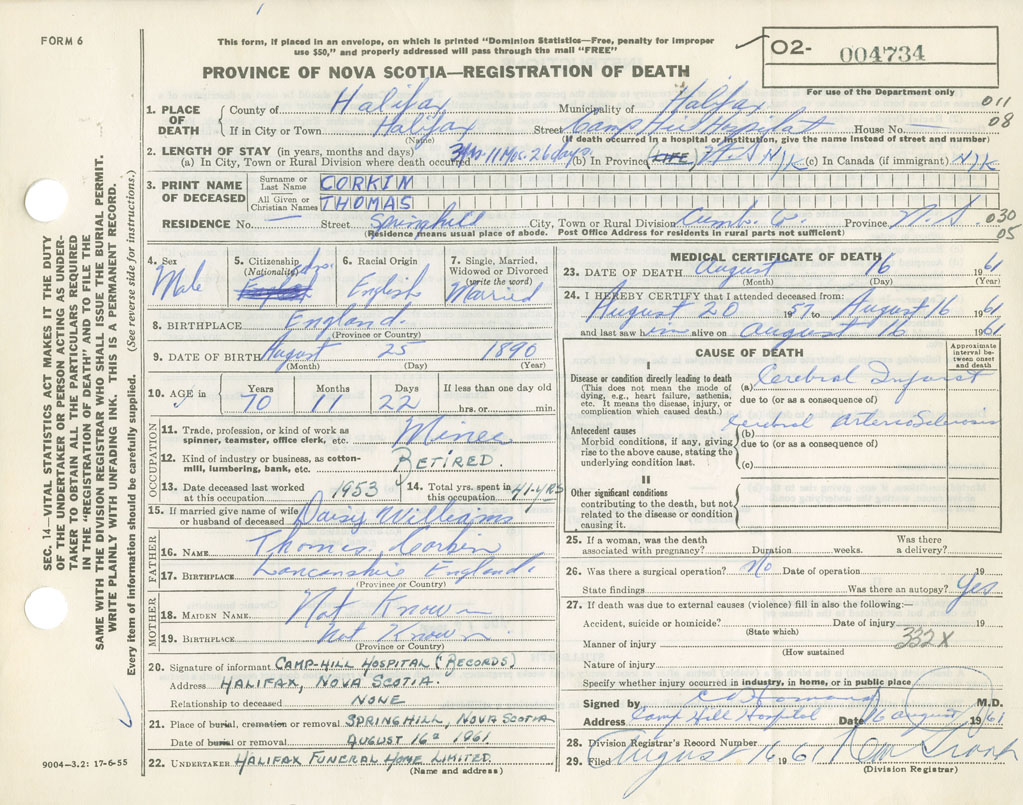 FORM 6
This form, if placed in an envelope, on which is printed "Dominion Statistics—Free, penalty for improper
use $50," and properly addressed will pass through the mail "FREE"
02- 004734
For use of the Department only
PROVINCE OF NOVA SCOTIA—REGISTRATION OF DEATH
011
08
1. PLACE OF DEATH County of Halifax Municipality of Halifax
If in City or Town Halifax Street Camp Hill Hospital House No. —
(Name) (If death occurred in a hospital or institution, give the name instead of street and number)
2. LENGTH OF STAY (in years, months and days)
(a) In City, Town or Rural Division where death occurred 11 Mos. 26 days (b) In Province (LIFE) N.S N/K (c) In Canada (if immigrant) N/K
3. PRINT NAME OF DECEASED
Surname or Last Name CORKIM
All Given or Christian Names THOMAS
RESIDENCE No. — Street Springhill City, Town or Rural Division Cumb. Co. Province N.S
(Residence means usual place of abode. Post Office Address for residents in rural parts not sufficient)
030
05
4. Sex Male
5. Citizenship (Nationality) Cdn. English
6. Racial Origin English
7. Single, Married, Widowed or Divorced (write the word) Married
8. BIRTHPLACE England.
(Province or Country)
9. DATE OF BIRTH August 25 1890
(Month) (Day) (Year)
10. AGE in Years 70 Months 11 Days 22 If less than one day old
hrs. or min.
OCCUPATION
11. Trade, profession, or kind of work as spinner, teamster, office clerk, etc. Miner
12. Kind of industry or business, as cotton-mill, lumbering, bank, etc. RETIRED.
13. Date deceased last worked at this occupation 1953 14. Total yrs. spent in this occupation 41-YRS
15. If married give name of wife or husband of deceased Daisy Williams
FATHER
16. NAME Thomas Corkin
17. BIRTHPLACE Lancanshire England.
(Province or Country)
MOTHER
18. MAIDEN NAME Not Known
19. BIRTHPLACE Not Known.
(Province or Country)
20. Signature of informant CAMP-HILL HOSPITAL (RECORDS)
Address HALIFAX, NOVA SCOTIA.
Relationship to deceased NONE
21. Place of burial, cremation or removal SPRINGHILL, NOVA SCOTIA
Date of burial or removal AUGUST 16th 1961
22. UNDERTAKER HALIFAX FUNERAL HOME LIMITED.
(Name and address)
MEDICAL CERTIFICATE OF DEATH
23. DATE OF DEATH August 16 1961
(Month) (Day) (Year)
24. I HEREBY CERTIFY that I attended deceased from:
August 20 1957 to August 16 1961
and last saw him alive on August 16 1961
CAUSE OF DEATH
Approximate interval between onset and death
I
Disease or condition directly leading to death
(This does not mean the mode of dying, e.g., heart failure, asthenia, etc. It means the disease, injury, or complication which caused death.)
(a) Cerebral Infarct
due to (or as a consequence of)
Antecedent causes
Morbid conditions, if any, giving rise to the above cause, stating the underlying condition last.
(b) Cerebral Arteriosclerosis
due to (or as a consequence of)
(c)
II
Other significant conditions
contributing to the death, but not related to the disease or condition causing it.
25. If a woman, was the death associated with pregnancy? Duration weeks. Was there a delivery?
26. Was there a surgical operation? No Date of operation 19
State findings Was there an autopsy? Yes
27. If death was due to external causes (violence) fill in also the following:—
Accident, suicide or homicide? Date of injury 19
(State which)
Manner of injury 332X
(How sustained
Nature of injury
Specify whether injury occurred in industry, in home, or in public place
Signed by M.D.
Address Camp Hill Hospital Date 16 August 1961
28. Division Registrar's Record Number
29. Filed August 16 1961
(Division Registrar)
SEC. 14—VITAL STATISTICS ACT MAKES IT THE DUTY
OF THE UNDERTAKER OR PERSON ACTING AS UNDER-
TAKER TO OBTAIN ALL THE PARTICULARS REQUIRED
IN THE "REGISTRATION OF DEATH" AND TO FILE THE
SAME WITH THE DIVISION REGISTRAR WHO SHALL ISSUE THE BURIAL PERMIT.
WRITE PLAINLY WITH UNFADING INK. THIS IS A PERMANENT RECORD.
Every item of information should be carefully supplied. (See reverse side for instructions.)
9004—3.2: 17-6-55